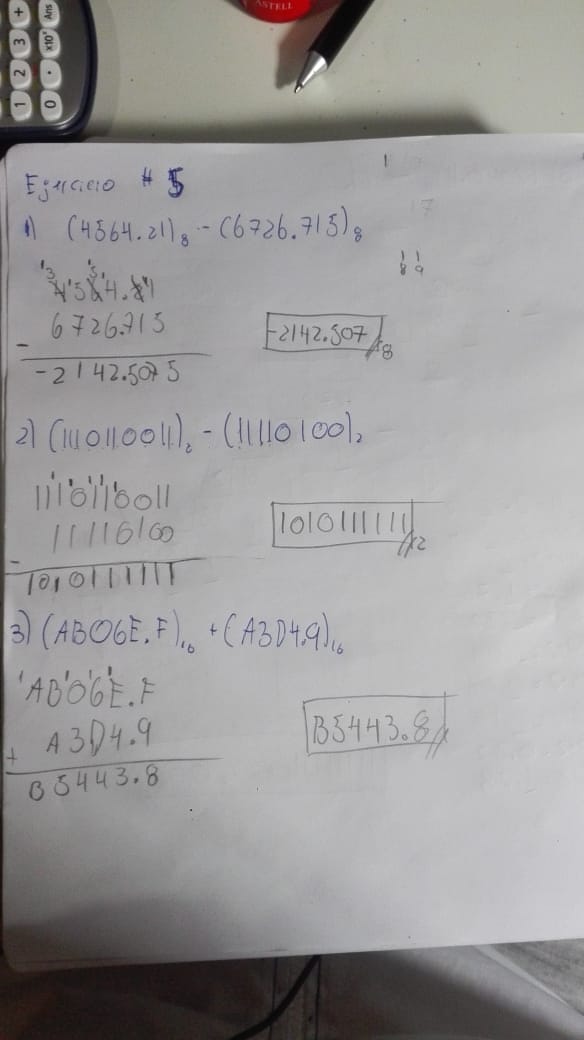 ASTELL
1 2 3 +
0 . x10ˣ Ans
Ejercicio # 5
1) (4564.21)₈ - (6726.715)₈
6726.715
-
-2142.5075
-2142.507 8
2) (1110110011)₂ - (11110100)₂
1110110011
11110100
-
1010111111
1010111111 2
3) (AB06E.F)₁₆ + (A3D4.9)₁₆
AB06E.F
A3D4.9
+
B5443.8
B5443.8